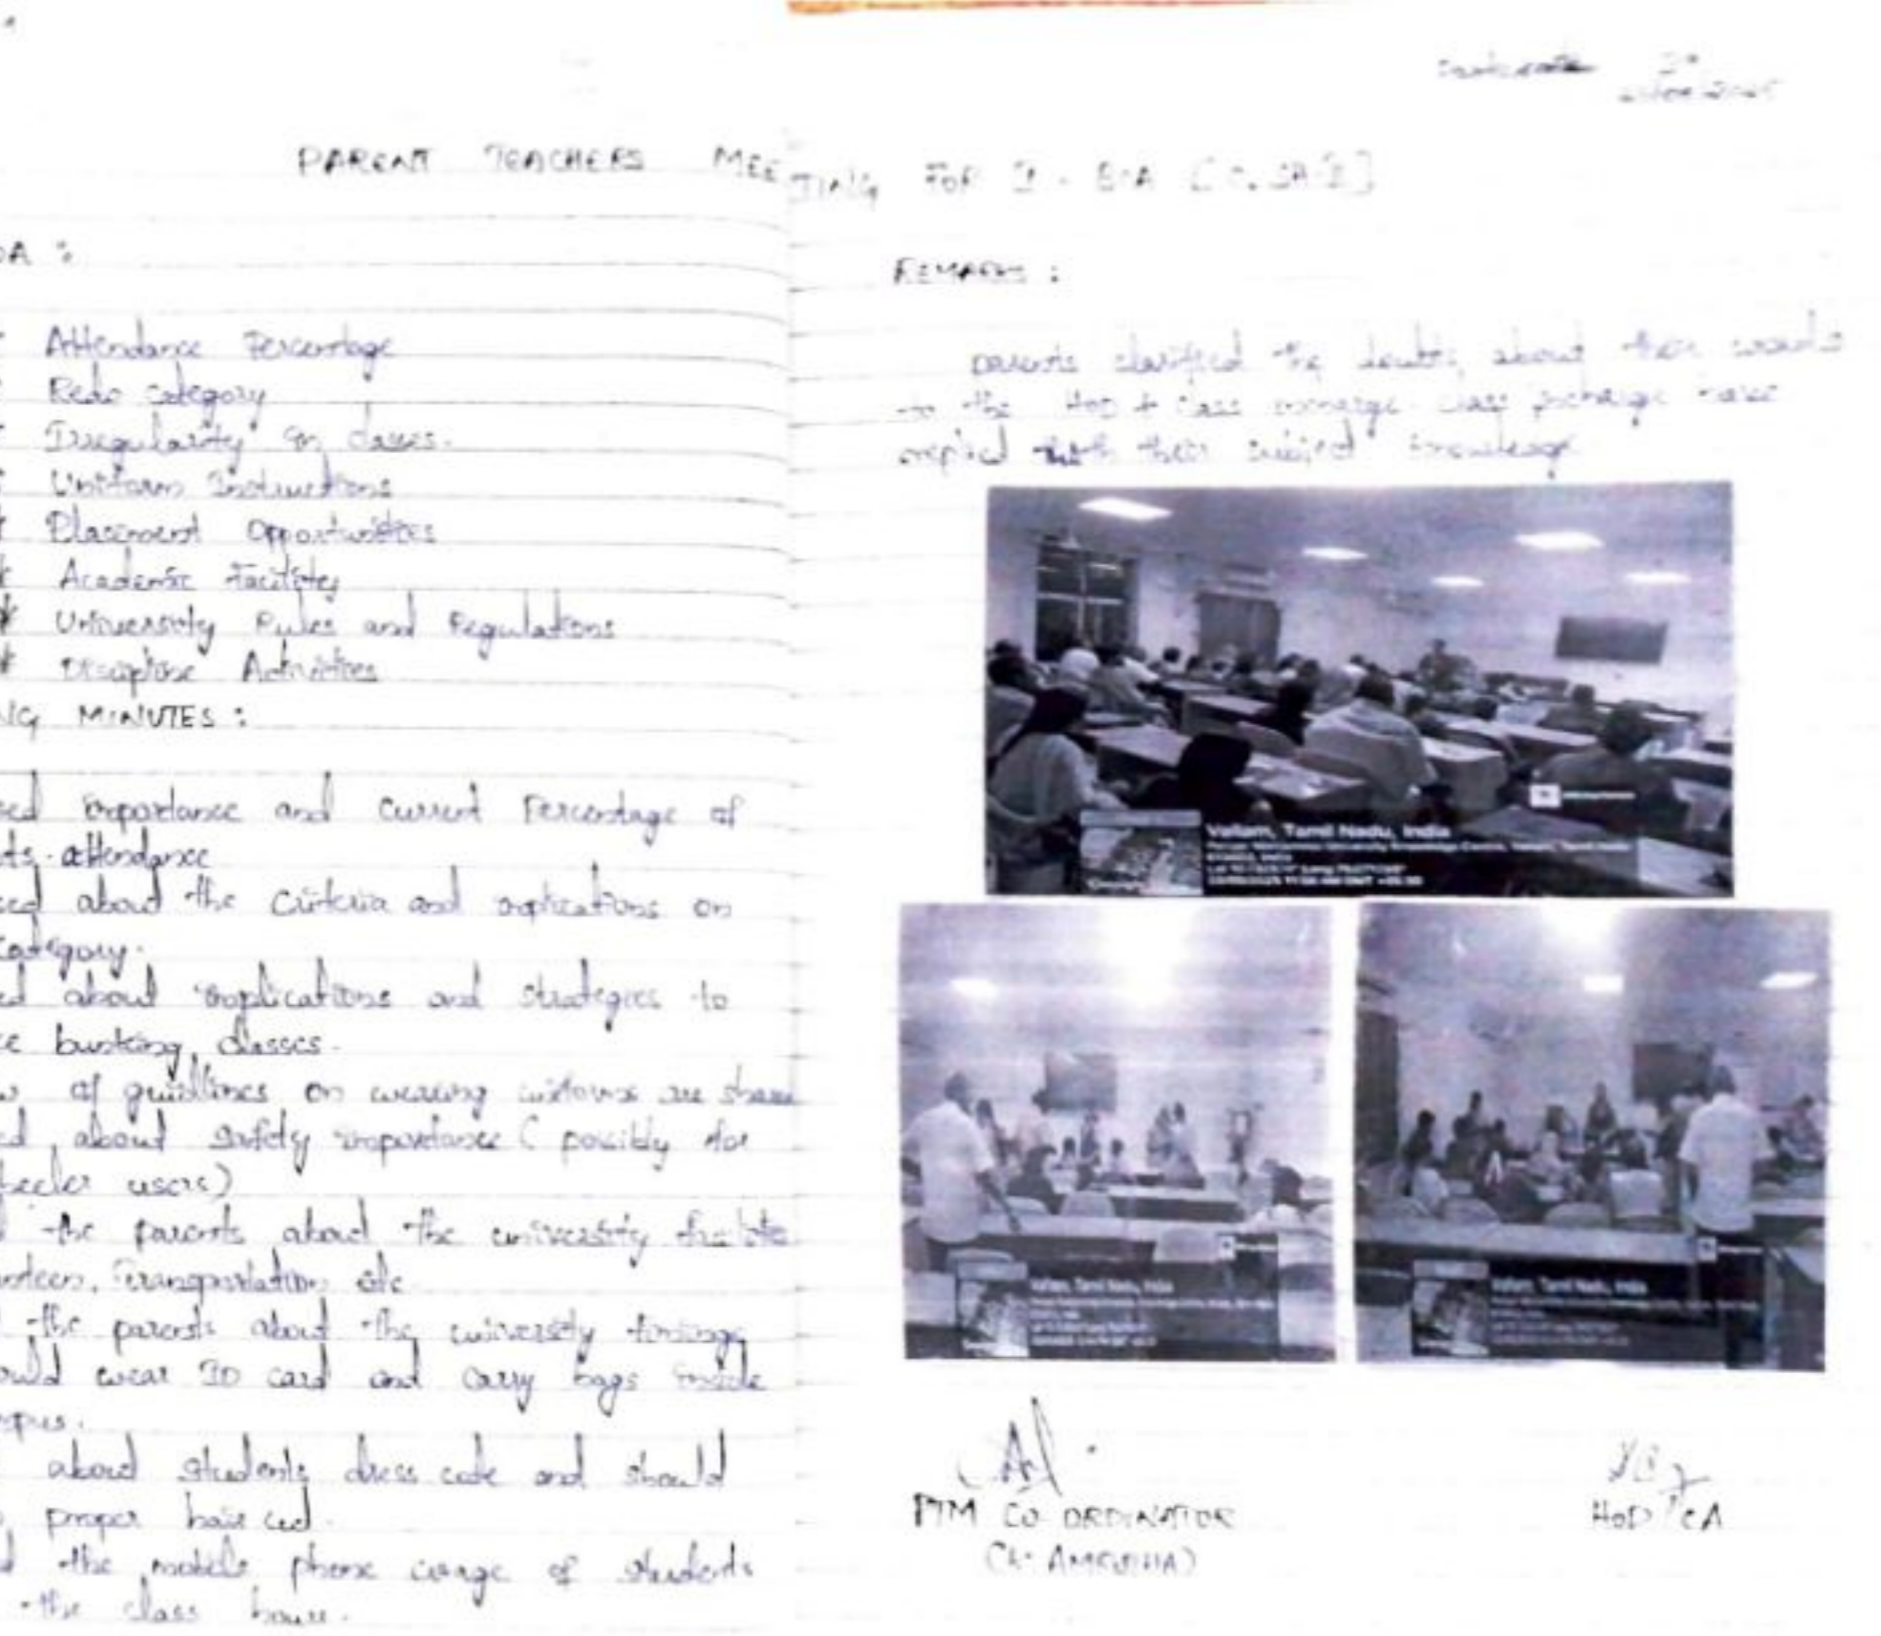 PARENT TEACHERS MEETING FOR
DA :
Attendance Percentage
Redo category
Irregularity in classes.
Uniform Instructions
Placement Opportunities
* Academic Facility
* University Rules and Regulations
* Discipline Activities
NG MINUTES :
sed importance and current Percentage of
ts attendance
sed about the criteria and implications on
category.
ed about implications and strategies to
bunking classes.
of guidlines on wearing are share
ed about safety importance ( possibly for
eeler users)
the parents about the university
nteen, Transportation etc
the parents about the university
ould wear ID card and carry bags inside
mpus.
about students dress code and should
proper hair cut.
the mobile phone usage of students
the class hour.
REMARKS :
parents clarified the doubts about their wards
to the HOD + Class incharge. Class incharge have
replied with their subject knowledge
Vallam, Tamil Nadu, India
Vallam, Tamil Nadu, India
Vallam, Tamil Nadu, India
PTM CO ORDINATOR
HOD / CA